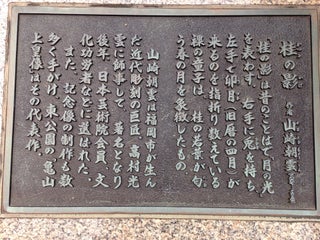 桂の影
作者 山崎朝雲
「桂の影」は昔のことばで月の光
を表わす。右手に兎を持ち、
左手で卯月(旧暦の四月)が
来るのを指折り数えている
裸の童子は、桂の若葉が匂
う春の月を象徴したもの
山崎朝雲は福岡市が生ん
だ近代彫刻の巨匠、高村光
雲に師事して、著名となり
後年、日本芸術院会員、文
化功労者などに選ばれた。
また、記念像の制作も数
多く手がけ、東公園の亀山
上皇像はその代表作。